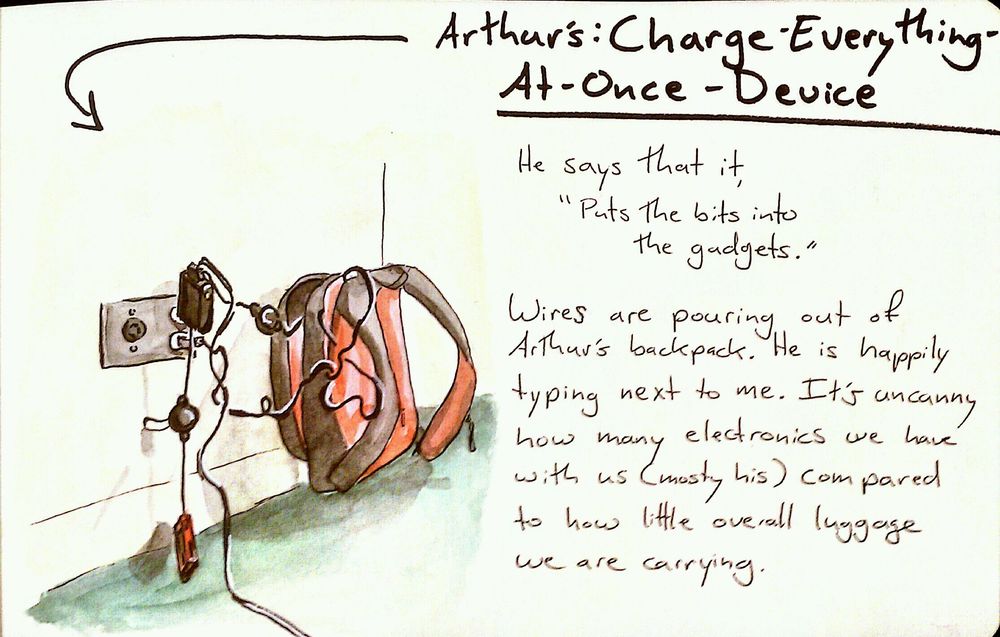 Arthur's: Charge-Everything-
At-Once-Device
He says that it,
"Puts the bits into
the gadgets."
Wires are pouring out of
Arthur's backpack. He is happily
typing next to me. It's uncanny
how many electronics we have
with us (mosty his) compared
to how little overall luggage
we are carrying.